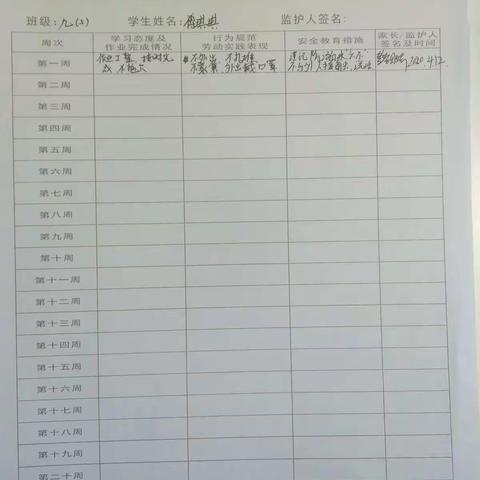 班级:九(2) 学生姓名: 琪琪 监护人签名:
周次 学习态度及作业完成情况 行为规范劳动实践表现 安全教育措施 家长/监护人签名及时间
第一周 作业工整 按时完成 不拖欠 不外出 不扎堆 不聚集 外出戴口罩 2020.4.12
第二周
第三周
第四周
第五周
第六周
第七周
第八周
第九周
第十周
第十一周
第十二周
第十三周
第十四周
第十五周
第十六周
第十七周
第十八周
第十九周
第二十周